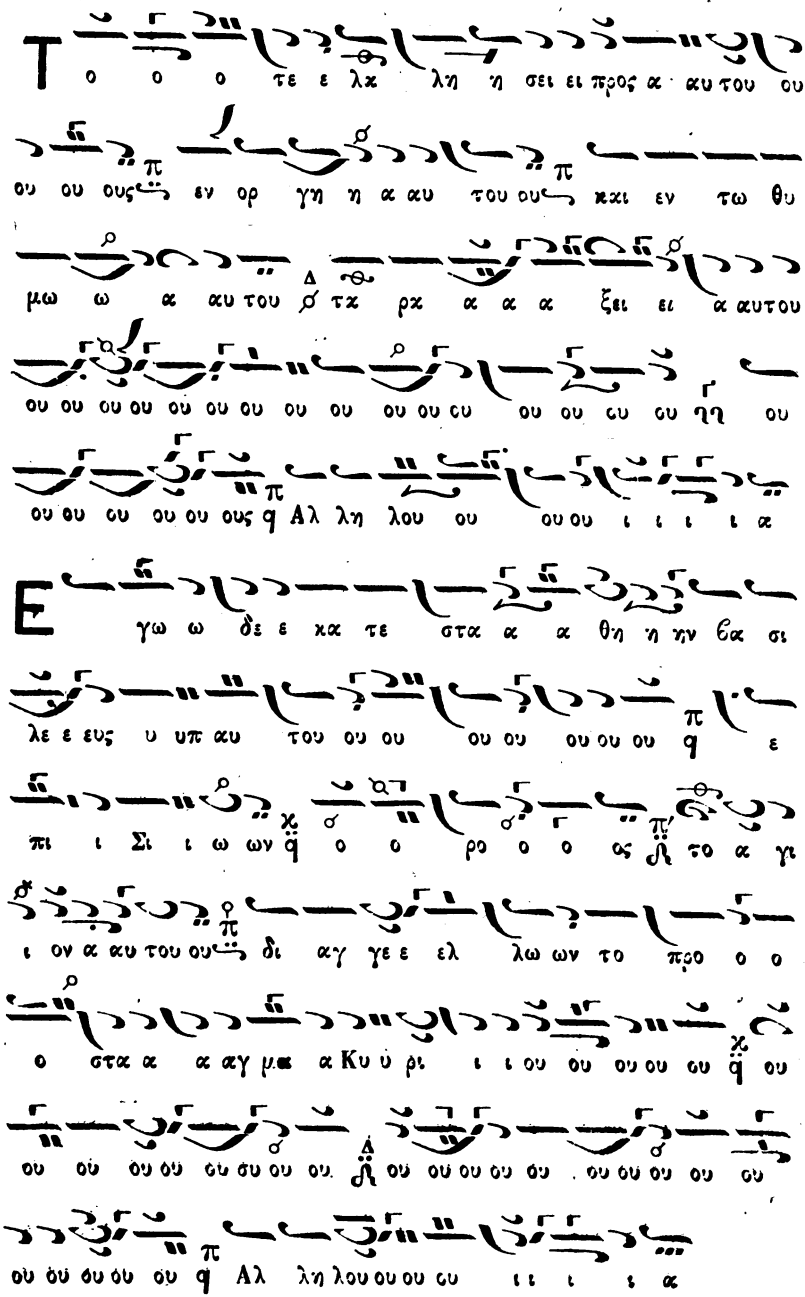 Τ ο ο ο τε ε λα λη η σει ει προς α αυ του ου
ου ου ους εν ορ γη η α αυ του ου και εν τω θυ
μω ω α αυ του τα ρα α α α ξει ει α αυτου
ου ου ου ου ου ου ου ου ου ου ου ου ου ου ου ου ου
ου ου ου ου ου ους Αλ λη λου ου ου ου ι ι ι ι α
Ε γω ω δε ε κα τε στα α α θη η ην βα σι
λε ε ευς υ υπ αυ του ου ου ου ου ου ου ου ε
πι ι Σι ι ω ων ο ο ρο ο ο ος το α γι
ι ον α αυ του ου δι αγ γε ε ελ λω ων το προ ο ο
ο στα α α αγ μα α Κυ υ ρι ι ι ου ου ου ου ου ου
ου ου ου ου ου ου ου ου ου ου ου ου ου ου ου ου ου ου
ου ου ου ου ου Αλ λη λου ου ου ου ι ι ι ι α